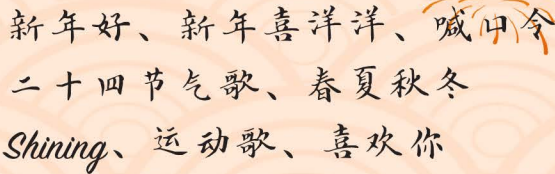 新年好、新年喜洋洋、喊口令
二十四节气歌、春夏秋冬
Shining、运动歌、喜欢你